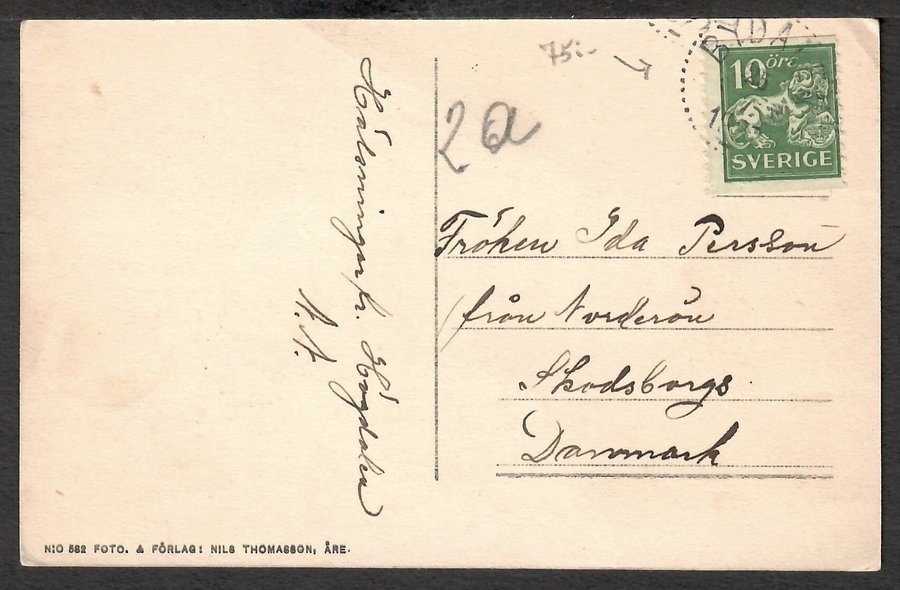 75:-
2a
10 öre
SVERIGE
Fröken Ida Persson
från Norderön
Skodsborgs
Danmark
Hälsningar fr.
N:O 582 FOTO. & FÖRLAG: NILS THOMASSON, ÅRE.